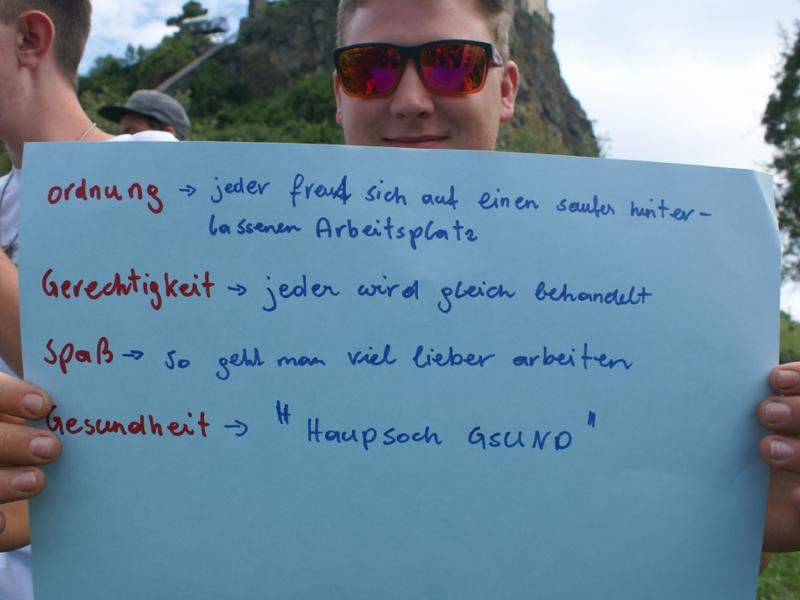 ordnung → jeder freut sich auf einen sauber hinter-
lassenen Arbeitsplatz
Gerechtigkeit → jeder wird gleich behandelt
Spaß → so geht man viel lieber arbeiten
Gesundheit → "Haupsoch GSUND"